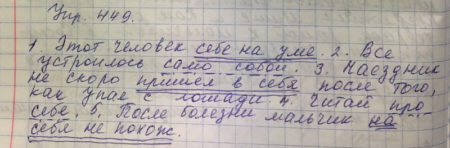 Упр. 449.
1. Этот человек себе на уме. 2. Все
устроилось само собой. 3. Наездник
не скоро пришел в себя после того,
как упал с лошади. 4. Читай про
себе. 5. После болезни мальчик на
себя не похож.